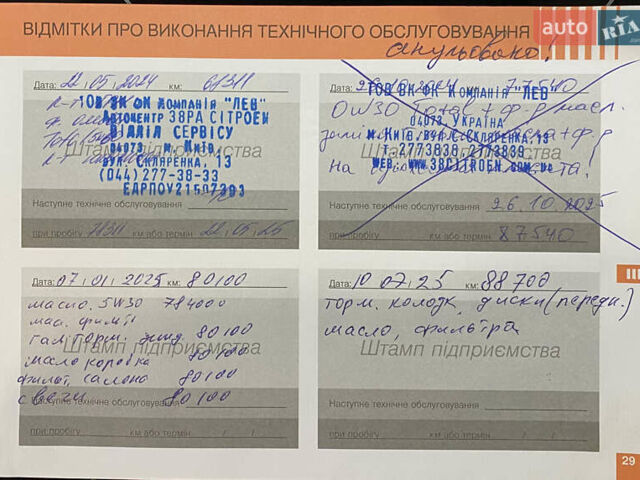 ВІДМІТКИ ПРО ВИКОНАННЯ ТЕХНІЧНОГО ОБСЛУГОВУВАННЯ
auto RIA
анульовано!
Дата: 22.05.2024 км: 61311
ТОВ ВК ФК Компанія "ЛЕВ"
Автоцентр ЗВРА СІТРОЕН
ВІДДІЛ СЕРВІСУ
04073 м. Київ,
вул. Скляренка, 13
(044) 277-38-33
ЄДРПОУ
Штамп підприємства
Наступне технічне обслуговування
при пробігу 71311 км або термін 22.05.25
Дата: 26.10.2024 77540
ТОВ ВК ФК Компанія "ЛЕВ"
OW30 Total + ф-р масл.
04073, УКРАЇНА
м. Київ, вул. С. Скляренка, 13
т. 2773838, 2773839
WEB: www.38CITROEN.com.ua
Штамп підприємства
Наступне технічне обслуговування 26.10.2025
при пробігу 87540 км або термін
Дата: 07.01.2025 км: 80100
масло. 5W30
80100
масло коробка 80100
фильт. салона 80100
свечи 80100
Штамп підприємства
Наступне технічне обслуговування
при пробігу км або термін / /
Дата: 10 07.25 км: 88700
торм. колодк, диски (передн.)
масло, фильтра
Штамп підприємства
Наступне технічне обслуговування
при пробігу км або термін / /
29